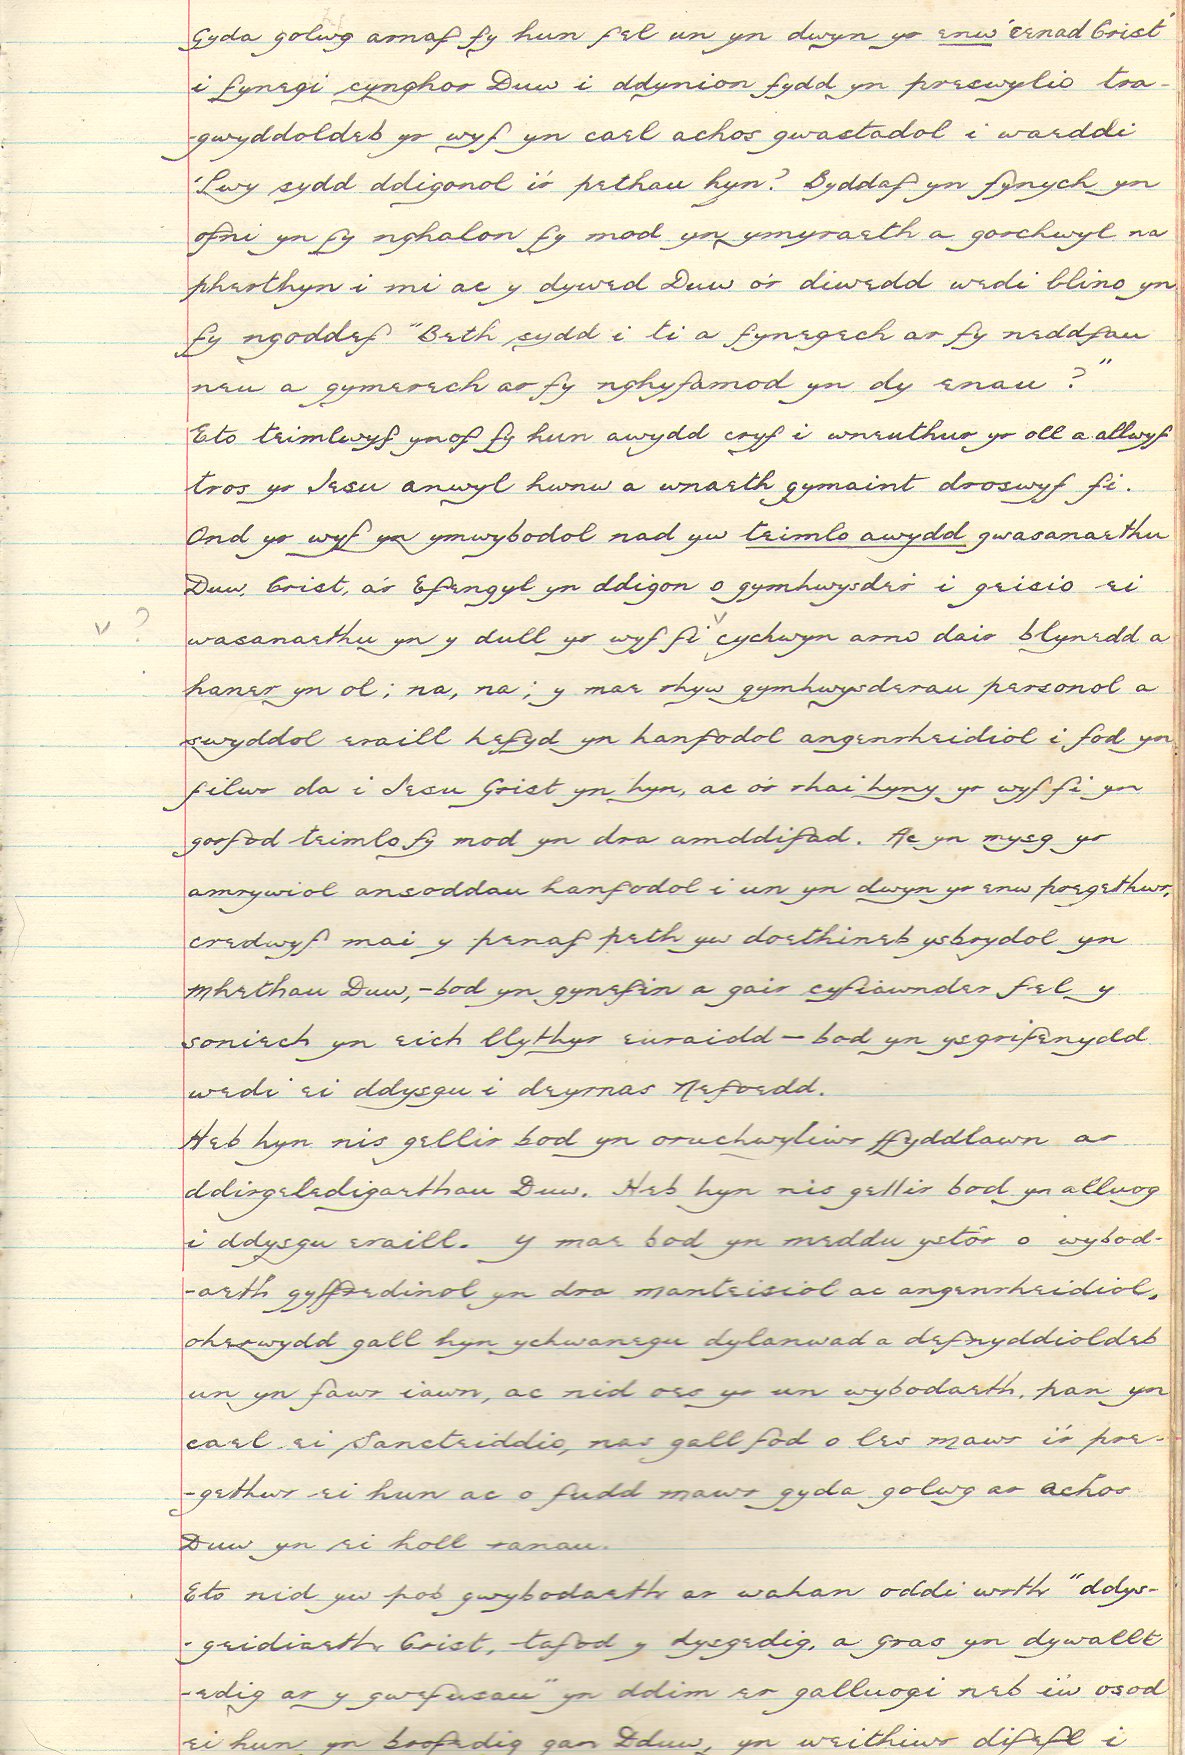 Gyda golwg arnaf fy hun fel un yn dwyn yr enw 'cenad Crist'
i fynegi cynghor Duw i ddynion fydd yn preswylio tra-
-gwyddoldeb yr wyf yn cael achos gwastadol i waeddi
'Pwy sydd ddigonol i'r pethau hyn? Byddaf yn fynych yn
ofni yn fy nghalon fy mod yn ymyraeth a gorchwyl na
pherthyn i mi ac y dywed Duw o'r diwedd wedi blino yn
fy ngoddef "Beth sydd i ti a fynegech ar fy neddfau
neu a gymerech ar fy nghyfamod yn dy enau?"
Eto teimlwyf ynof fy hun awydd cryf i wneuthur yr oll a allwyf
tros yr Iesu anwyl hwnw a wnaeth gymaint droswyf fi.
Ond yr wyf yn ymwybodol nad yw teimlo awydd gwasanaethu
Duw, Crist, a'r Efengyl yn ddigon o gymhwysder i geisio ei
v ? wasanaethu yn y dull yr wyf fi v cychwyn arno dair blynedd a
haner yn ol; na, na; y mae rhyw gymhwysderau personol a
swyddol eraill hefyd yn hanfodol angenrheidiol i fod yn
filwr da i Iesu Grist yn hyn, ac o'r rhai hyny yr wyf fi yn
gorfod teimlo fy mod yn dra amddifad. Ac yn mysg yr
amrywiol ansoddau hanfodol i un yn dwyn yr enw pregethwr,
credwyf mai y penaf peth yw doethineb ysbrydol yn
mhethau Duw, - bod yn gynefin a gair cyfiawnder fel y
soniech yn eich llythyr euraidd - bod yn ysgrifenydd
wedi ei ddysgu i deyrnas Nefoedd.
Heb hyn nis gellir bod yn oruchwyliwr ffyddlawn ar
ddirgeledigaethau Duw. Heb hyn nis gellir bod yn alluog
i ddysgu eraill. Y mae bod yn meddu ystôr o wybod-
-aeth gyffredinol yn dra manteisiol ac angenrheidiol,
oherwydd gall hyn ychwanegu dylanwad a defnyddioldeb
un yn fawr iawn, ac nid oes yr un wybodaeth, pan yn
cael ei Sancteiddio, nas gall fod o les mawr i'r pre-
-gethwr ei hun ac o fudd mawr gyda golwg ar achos
Duw yn ei holl ranau.
Eto nid yw pob gwybodaeth ar wahan oddi wrth "ddys-
-geidiaeth Crist, tafod y dysgedig, a gras yn dywallt
-edig ar y gwefusau" yn ddim er galluogi neb i'w osod
ei hun yn brofedig gan Dduw, yn weithiwr difefl i